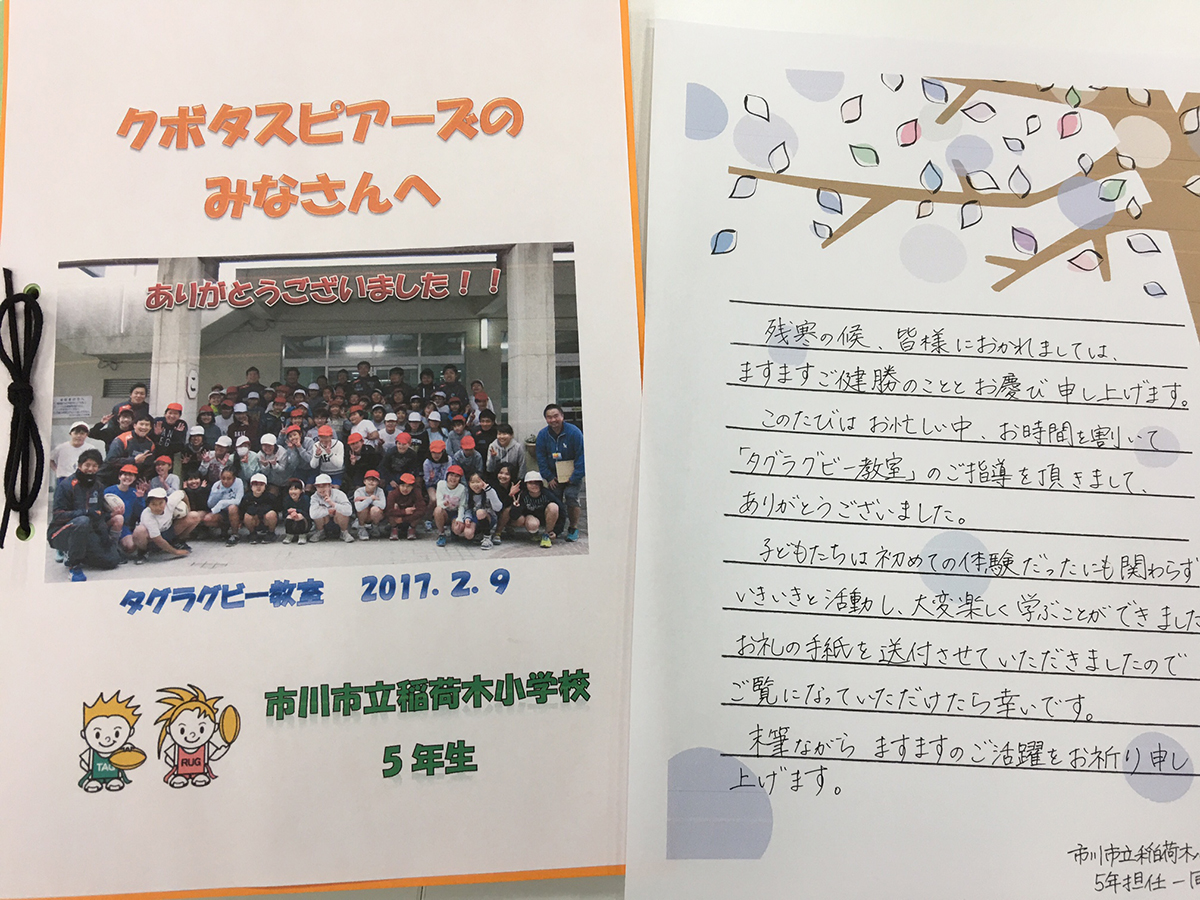 クボタスピアーズの
みなさんへ
ありがとうございました!!
タグラグビー教室 2017.2.9
TAG
RUG
市川市立稲荷木小学校
5年生
残寒の候、皆様におかれましては、
ますますご健勝のこととお慶び申し上げます。
このたびはお忙しい中、お時間を割いて
「タグラグビー教室」のご指導を頂きまして、
ありがとうございました。
子どもたちは初めての体験だったにも関わらず
いきいきと活動し、大変楽しく学ぶことができました
お礼の手紙を送付させていただきましたので
ご覧になっていただけたら幸いです。
末筆ながらますますのご活躍をお祈り申し
上げます。
市川市立稲荷木小
5年担任一同